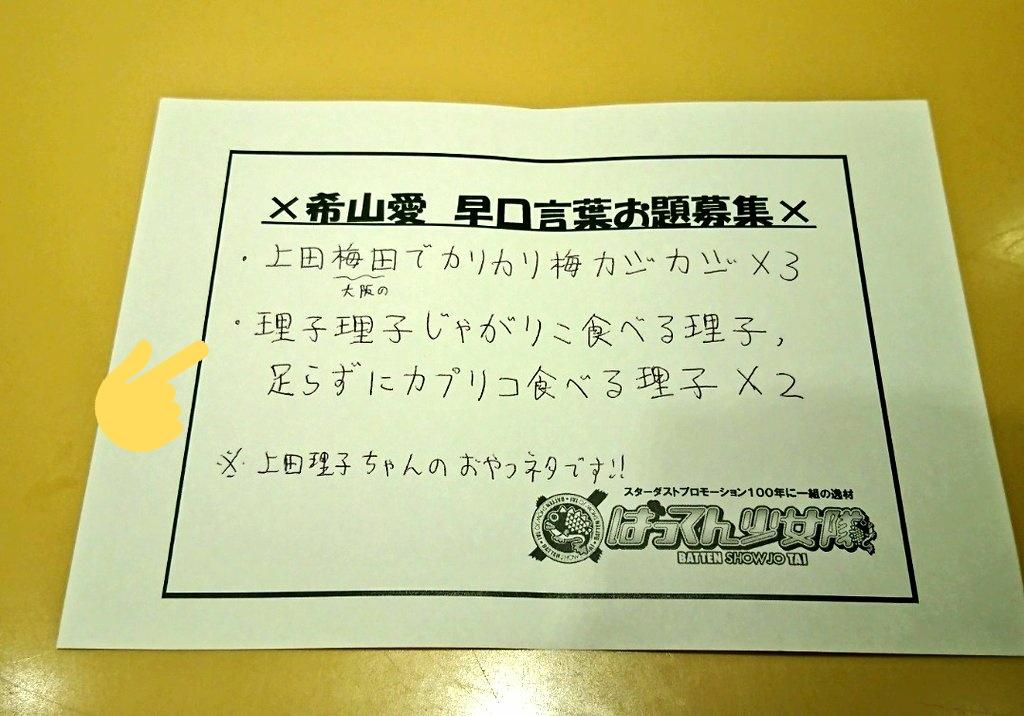 ×希山愛 早口言葉お題募集×
・上田梅田でカリカリ梅カジカジ×3
大阪の
・理子理子じゃがりこ食べる理子,
足らずにカプリコ食べる理子×2
※上田理子ちゃんのおやつネタです!!
スターダストプロモーション100年に一組の逸材
ばってん少女隊
BATTEN SHOWJO TAI